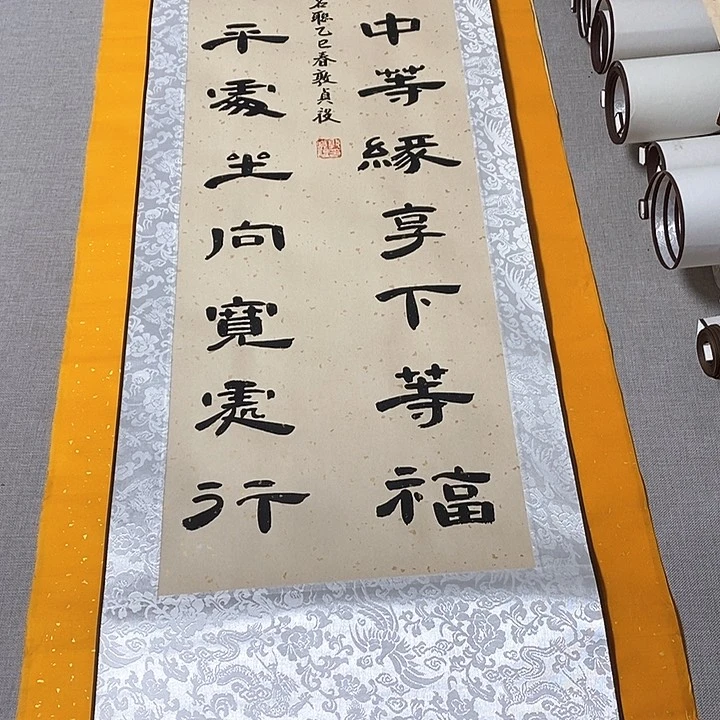 中等緣享下等福
平處坐向寬處行
名聯乙巳春貞